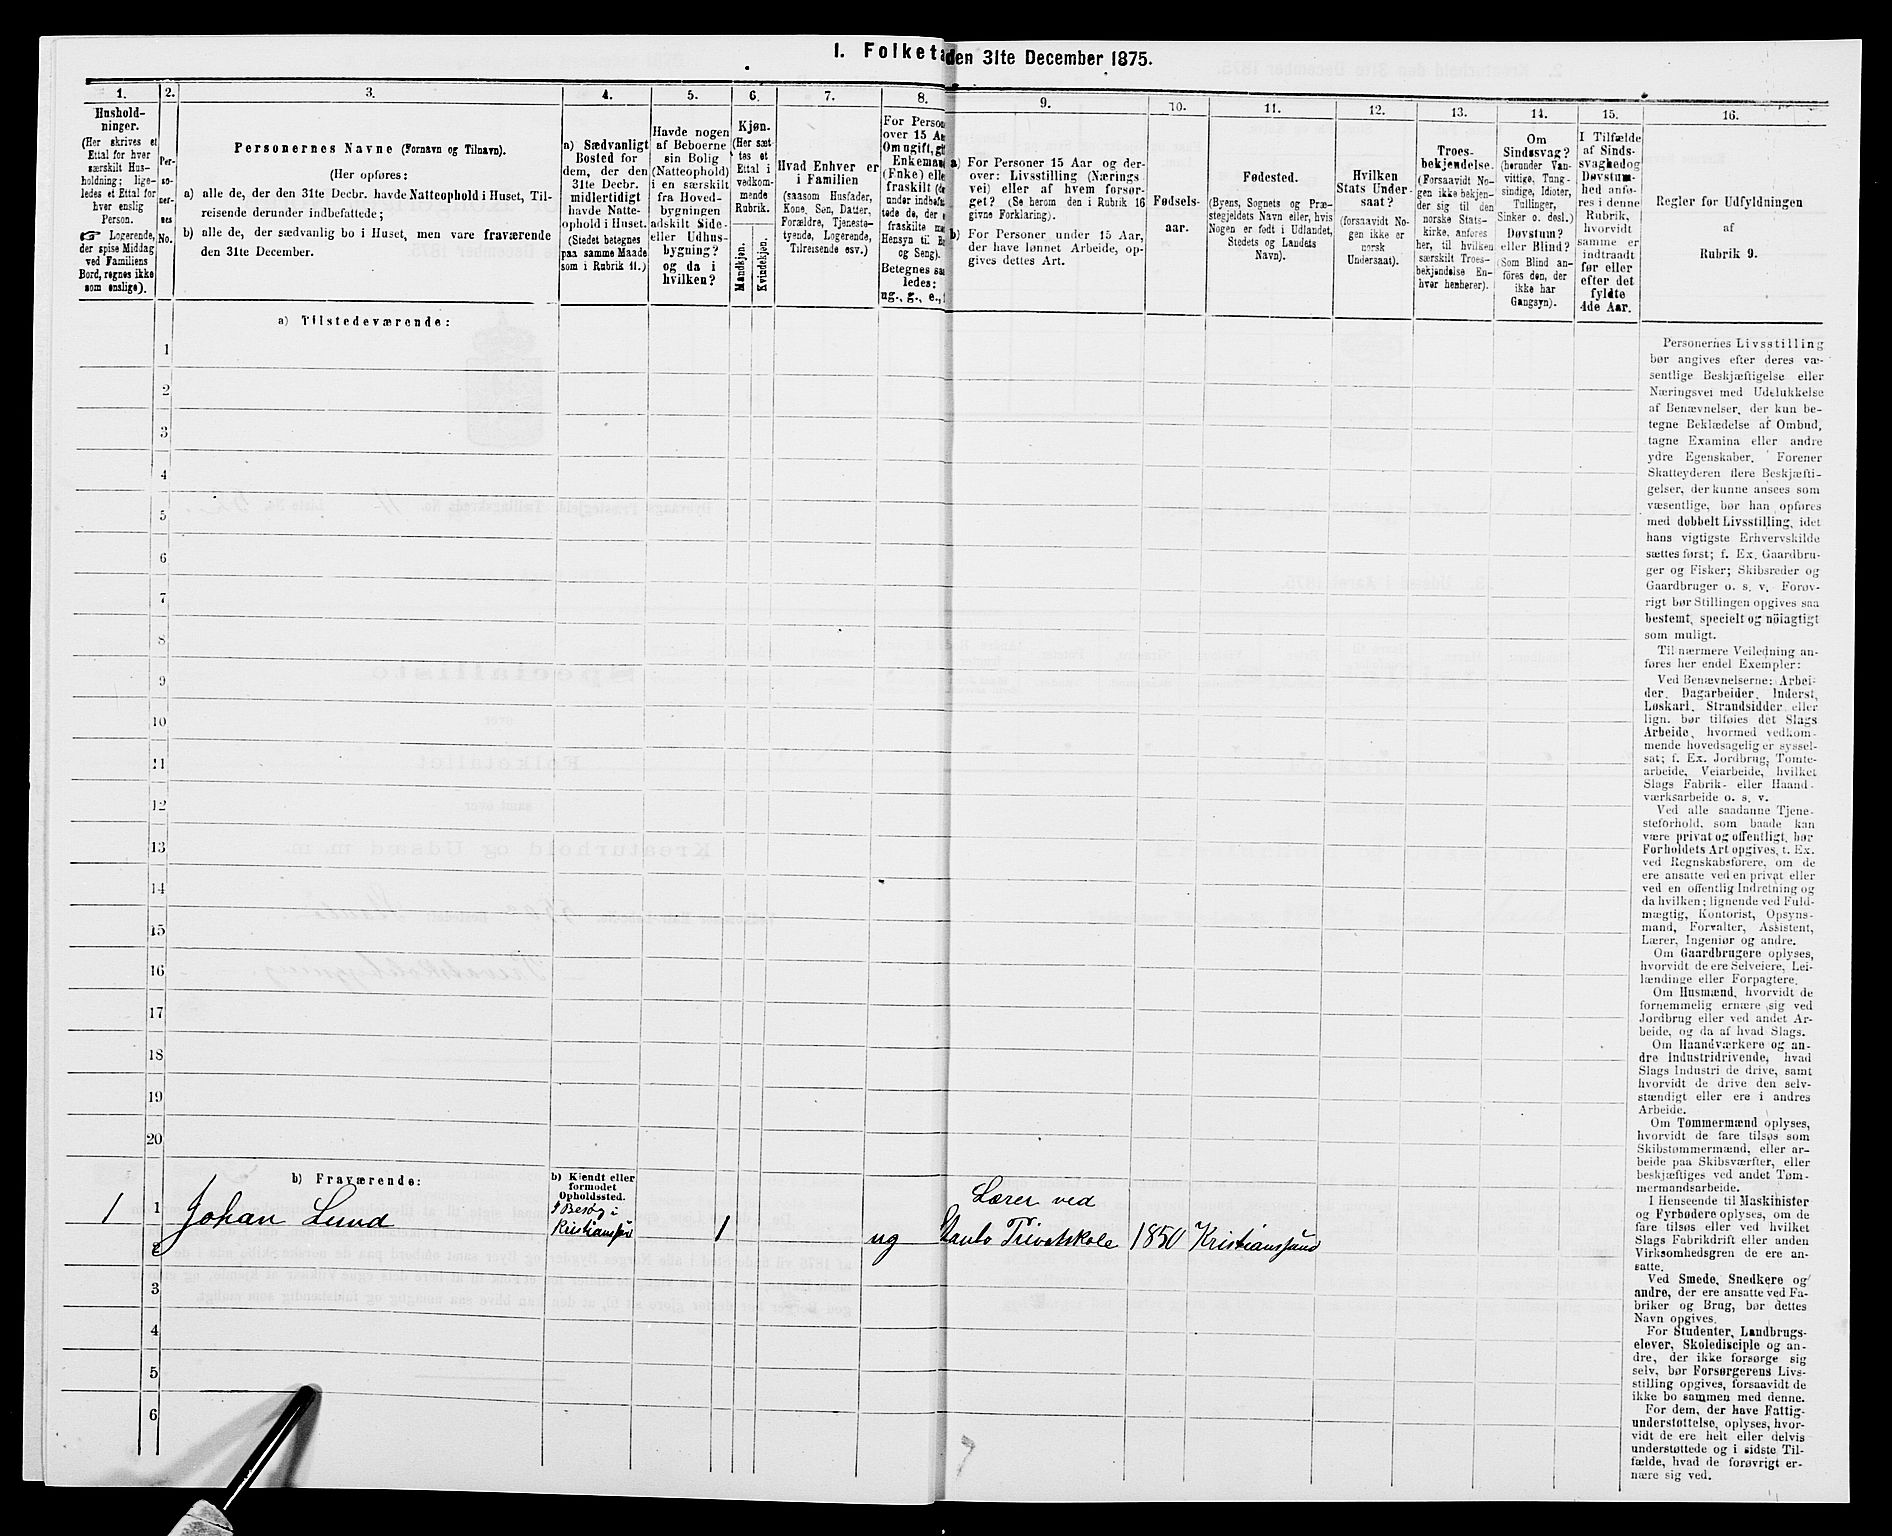 I. Folketæ den 31te December 1875.
1.
Hushold-
ninger.
(Her skrives et
Ettal for hver
særskilt Hus-
holdning; lige-
ledes et Ettal for
hver enslig
Person.
☞ Logerende,
der spise Middag
ved Familiens
Bord, regnes ikke
som enslige).
2.
Per-
so-
ner-
nes
No.
3.
Personernes Navne (Fornavn og Tilnavn).
(Her opføres:
a) alle de, der den 31te Decbr. havde Natteophold i Huset, Til-
reisende derunder indbefattede;
b) alle de, der sædvanlig bo i Huset, men vare fraværende
den 31te December.
4.
a) Sædvanligt
Bosted for
dem, der den
31te Decbr.
midlertidigt
havde Natte-
ophold i Huset.
(Stedet betegnes
paa samme Maade
som i Rubrik 11.)
5.
Havde nogen
af Beboerne
sin Bolig
(Natteophold)
i en særskilt
fra Hoved-
bygningen
adskilt Side-
eller Udhus-
bygning?
og da i
hvilken?
6.
Kjøn.
(Her sæt-
tes et
Ettal i
vedkom-
mende
Rubrik.
Mandkjøn.
Kvindekjøn.
7.
Hvad Enhver er
i Familien
(saasom Husfader,
Kone, Søn, Datter,
Forældre, Tjeneste-
tyende, Logerende,
Tilreisende osv.)
8.
For Person
over 15 Aa
Om ugift, gi
Enkeman
(Enke) elle
fraskilt (de
under indbef
tede de, der e
fraskilte m
Hensyn til B
og Seng).
Betegnes saa
ledes:
ug., g., e.,
9.
a) For Personer 15 Aar og der-
over: Livsstilling (Nærings
vei) eller af hvem forsør-
get? (Se herom den i Rubrik 16
givne Forklaring).
b) For Personer under 15 Aar,
der have lønnet Arbeide, op-
gives dettes Art.
10.
Fødsels-
aar.
11.
Fødested.
(Byens, Sognets og Præ-
stegjeldets Navn eller, hvis
Nogen er født i Udlandet,
Stedets og Landets
Navn).
12.
Hvilken
Stats Under-
saat?
(forsaavidt No-
gen ikke er
norsk
Undersaat).
13.
Troes-
bekjendelse.
(Forsaavidt No-
gen ikke bekjen-
der sig til den
norske Stats-
kirke, anføres
her, til hvilken
særskilt Troes-
bekjendelse En-
hver henhører).
14.
Om
Sindssvag?
(herunder Van-
vittige, Tung-
sindige, Idioter,
Tullinger,
Sinker o. desl.)
Døvstum?
eller Blind?
(Som Blind an-
føres den, der
ikke har
Gangsyn).
15.
I Tilfælde
af Sinds-
svaghed og
Døvstum-
hed anfø-
res i denne
Rubrik,
hvorvidt
samme er
indtraadt
før eller
efter det
fyldte
4de Aar.
16.
Regler for Udfyldningen
af
Rubrik 9.
a) Tilstedeværende:
1
2
3
4
5
6
7
8
9
10
11
12
13
14
15
16
17
18
19
20
b) Fraværende:
b) Kjendt eller
formodet
Opholdssted.
1 1 Johan Lund På Besøg i Kristianssund 1 ug Lærer ved
Privatskole 1850 Kristianssund
2
3
4
5
6
Personernes Livsstilling
bør angives efter deres væ-
sentlige Beskjæftigelse eller
Næringsvei med Udelukkelse
af Benævnelser, der kun be-
tegne Beklædelse af Ombud,
tagne Examina eller andre
ydre Egenskaber. Forener
Skatteyderen flere Beskjæfti-
gelser, der kunne ansees som
væsentlige, bør han opføres
med dobbelt Livsstilling, idet
hans vigtigste Erhvervskilde
sættes først; f. Ex. Gaardbru-
ger og Fisker; Skibsreder og
Gaardbruger o. s. v. Forøv-
rigt bør Stillingen opgives saa
bestemt, specielt og nöiagtigt
som muligt.
Til nærmere Veiledning an-
føres her endel Exempler:
Ved Benævnelserne: Arbei-
der, Dagarbeider, Inderst,
Løskarl, Strandsidder eller
lign. bør tilføies det Slags
Arbeide, hvormed vedkom-
mende hovedsagelig er syssel-
sat; f. Ex. Jordbrug, Tomte-
arbeide, Veiarbeide, hvilket
Slags Fabrik- eller Haand-
værksarbeide o. s. v.
Ved alle saadanne Tjene-
steforhold, som baade kan
være privat og offentligt, bør
Forholdets Art opgives, t. Ex.
ved Regnskabsførere, om de
ere ansatte ved en privat eller
ved en offentlig Indretning og
da hvilken; lignende ved Fuld-
mægtig, Kontorist, Opsyns-
mand, Forvalter, Assistent,
Lærer, Ingeniør og andre.
Om Gaardbrugere oplyses,
hvorvidt de ere Selveiere, Lei-
lændinge eller Forpagtere.
Om Husmænd, hvorvidt de
fornemmelig ernære sig ved
Jordbrug eller ved andet Ar-
beide, og da af hvad Slags.
Om Haandværkere og an-
dre Industridrivende, hvad
Slags Industri de drive, samt
hvorvidt de drive den selv-
stændigt eller ere i andres
Arbeide.
Om Tømmermænd oplyses,
hvorvidt de fare tilsøs som
Skibstømmermænd, eller ar-
beide paa Skibsværfter, eller
beskjæftiges ved andet Tøm-
mermandsarbeide.
I Henseende til Maskinister
og Fyrbødere oplyses, om de
fare tilsøs eller ved hvilket
Slags Fabrikdrift eller anden
Virksomhedsgren de ere an-
satte.
Ved Smede, Snedkere og
andre, der ere ansatte ved Fa-
briker og Brug, bør dettes
Navn opgives.
For Studenter, Landbrugs-
elever, Skoledisciple og an-
dre, der ikke forsørge sig
selv, bør Forsørgerens Livs-
stilling opgives, forsaavidt de
ikke bo sammen med denne.
For dem, der have Fattig-
understøttelse, oplyses, hvor-
vidt de ere helt eller delvis
understøttede og i sidste Til-
fælde, hvad de forøvrigt er-
nære sig ved.